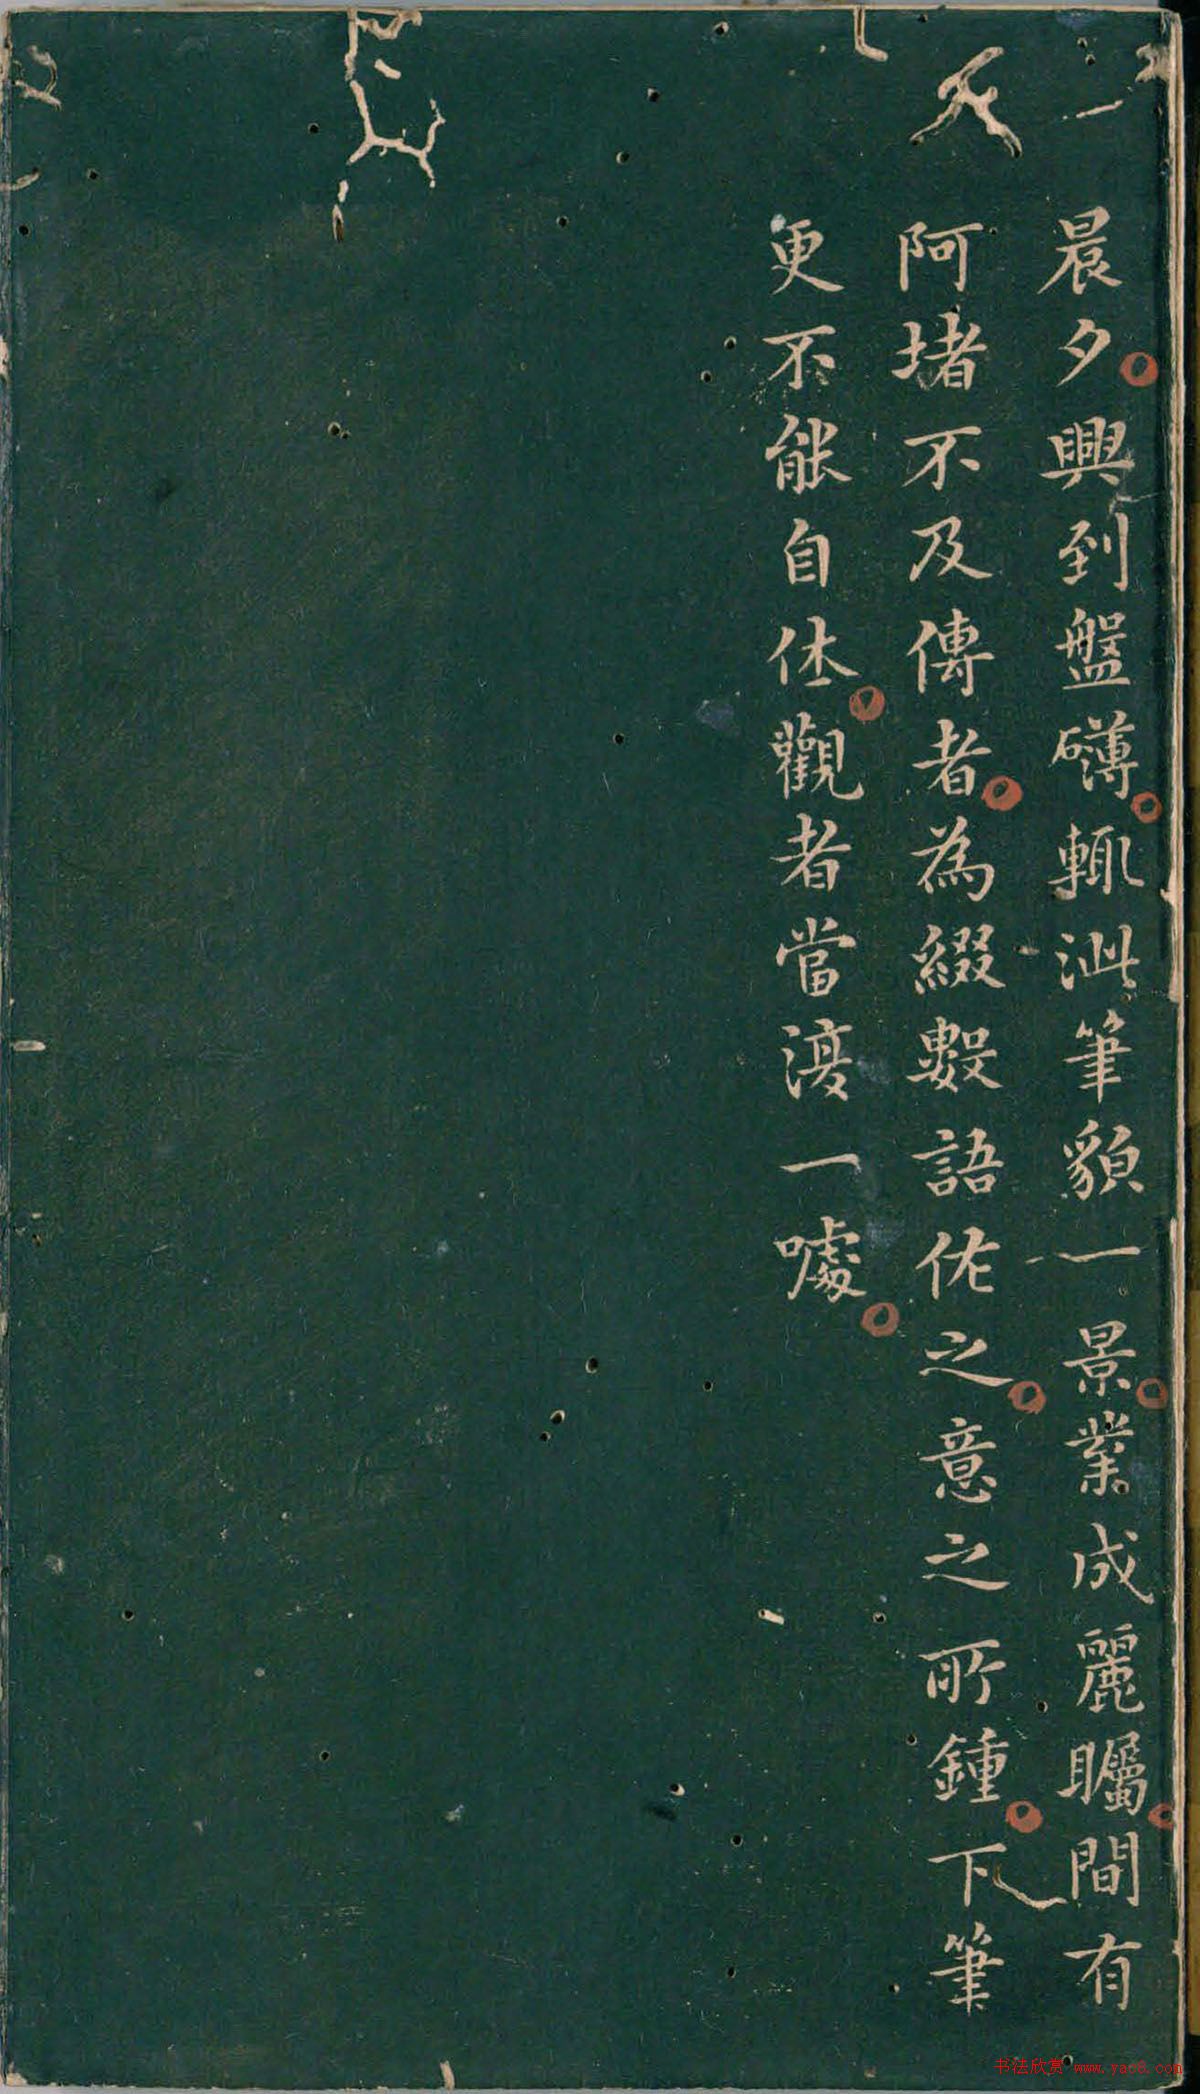 晨夕興到盤礴輒泚筆貌一景業成麗矚間有
阿堵不及傳者為綴數語佐之意之所鍾下筆
更不能自休觀者當濅一噱
书法欣赏 www.yac8.com